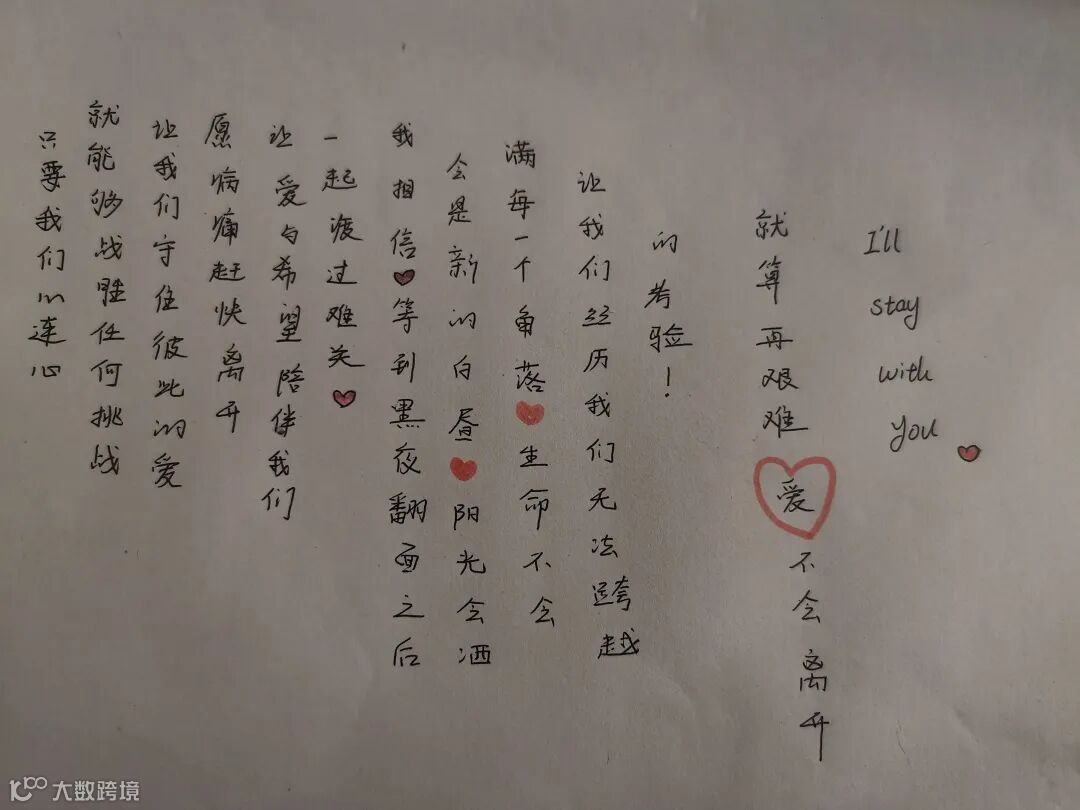 只要我们心连心
就能够战胜任何挑战
让我们守住彼此的爱
愿病痛赶快离开
让爱与希望陪伴我们
一起度过难关
我相信等到黑夜翻面之后
会是新的白昼阳光会洒
满每一个角落生命不会
让我们经历我们无法跨越
的考验!
就算再艰难爱不会离开
I'll
stay
with
you
大数跨境